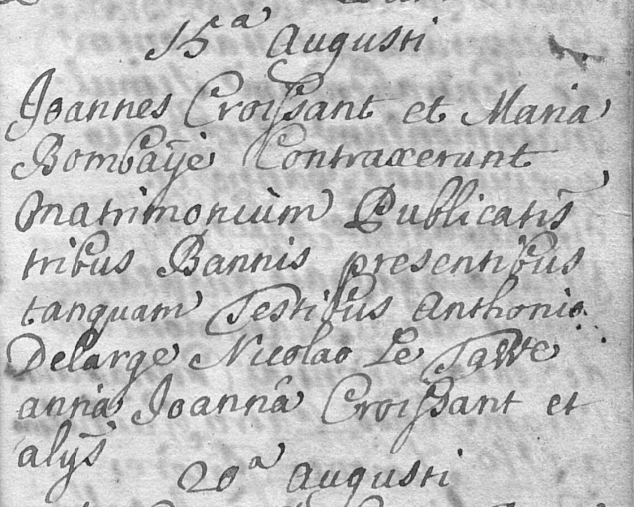 15a Augusti
Joannes Croissant et Maria
Bombaÿe Contraxerunt
Matrimonium Publicatis
tribus Bannis presentibus
tanquam Testibus Anthonio
Delarge Nicolao Le
anna Joannâ Croissant et
alÿs
20a Augusti